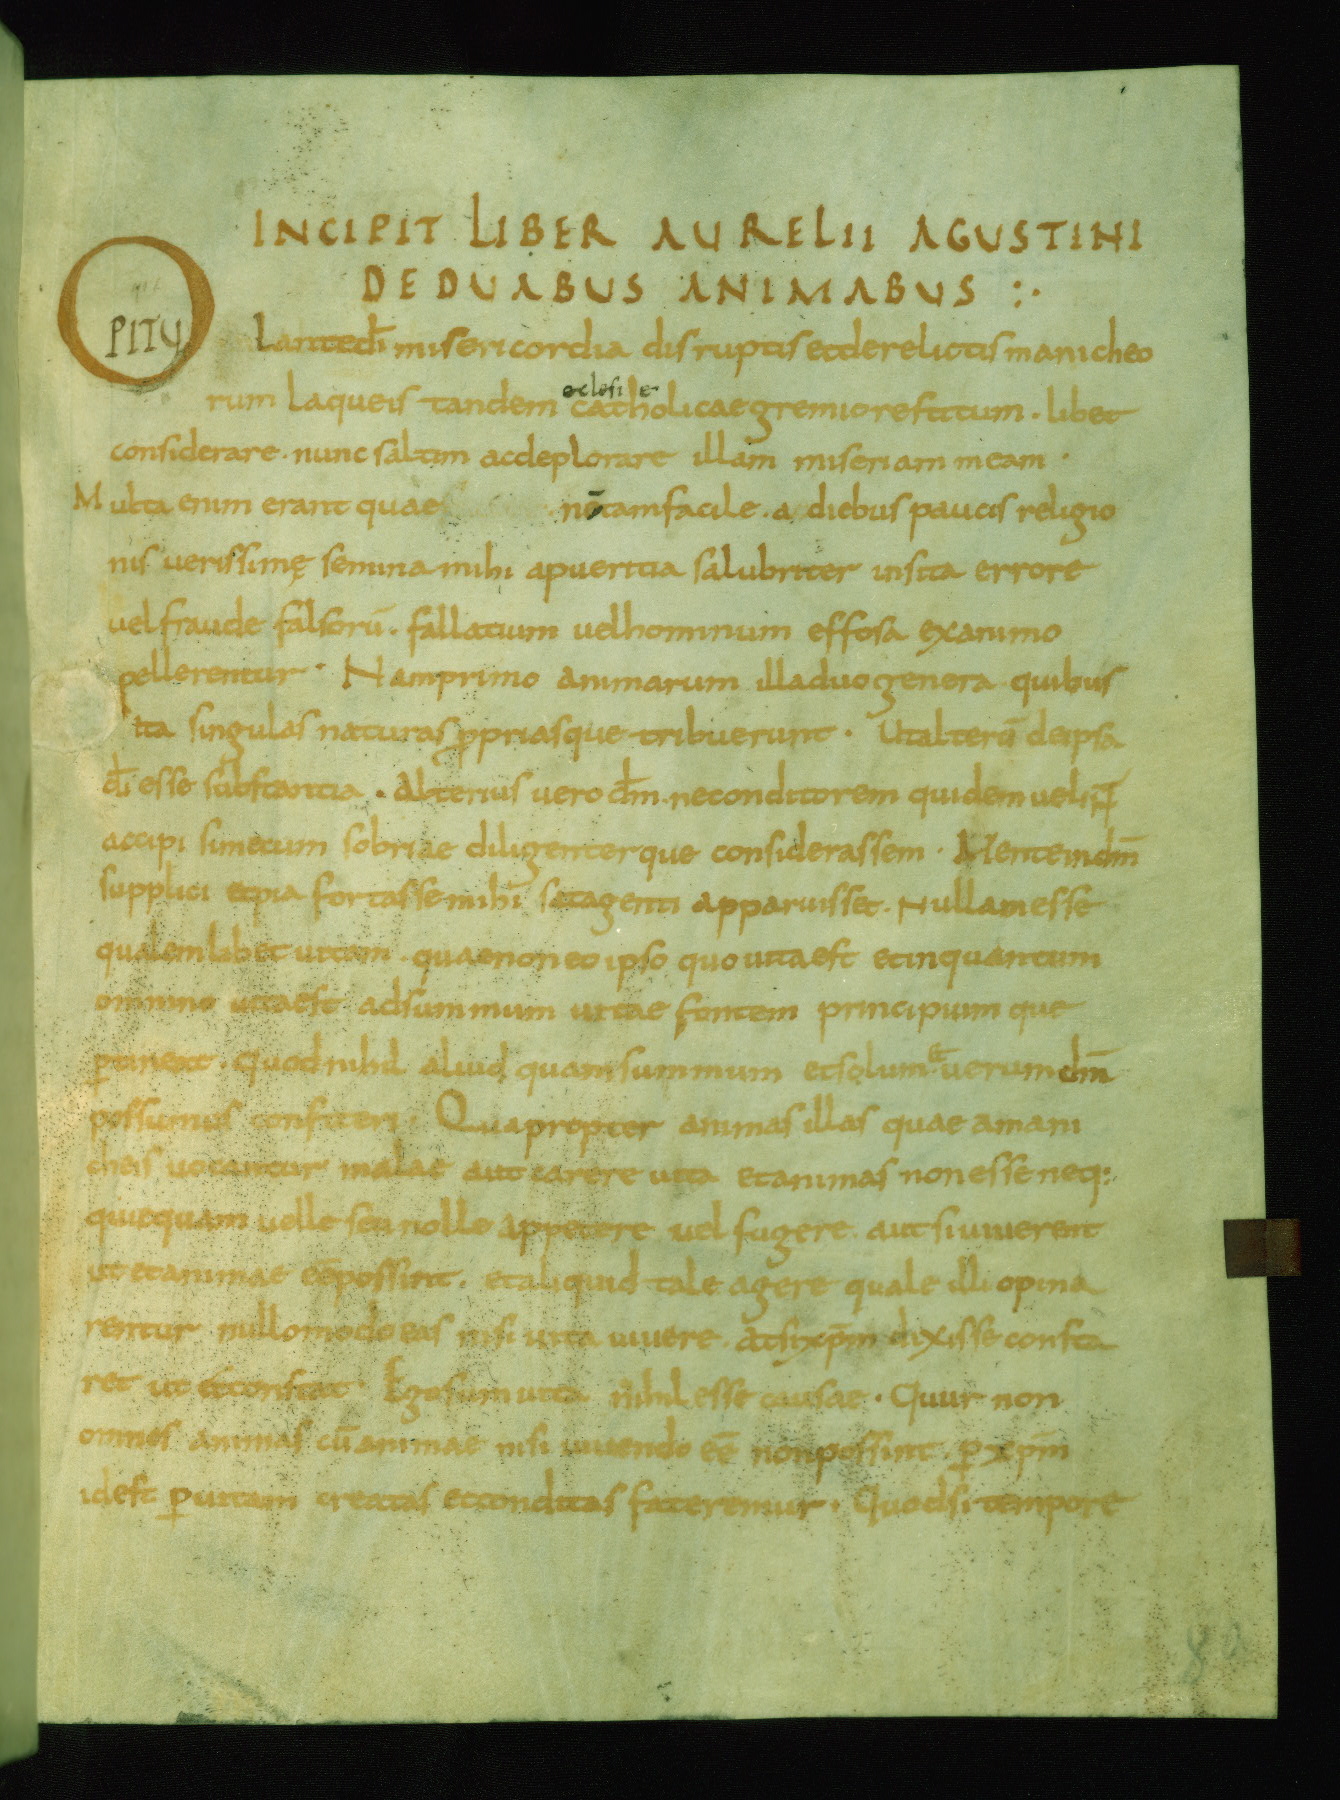 INCIPIT LIBER AURELII AGUSTINI
DEDUABUS ANIMABUS :·
OPITU Lantedi̅ misericordia disruptis etderelictis manicheo
rum laqueis tandem catholicae eclesiae gremiorestitum · libet
considerare · nunc saltim acdeplorare illam miseriam meam ·
Multa enim erant quae no̅tamfacile · a diebus paucis religio
nis uerissimę semina mihi apueritia salubriter insita errore
uelfraude falsoru̅ · fallatium uelhominum effosa exanimo
pellerentur · Namprimo animarum illaduogenera quibus
ita singulas naturas ꝓpriasque tribuerunt · Utalteru̅ deipsa
di̅ esse substantia · Alterius uero dm̅ · neconditorem quidem uelit
accipi simecum sobriae diligenterque considerassem · Menteindm̅
supplici etpia fortassemihi satagenti apparuisset · Nullamesse
qualemlibet uitam · quaenoneo ipso quouitaest etinquantum
omnino uitaest adsummum uitae fontem principium que
ꝑtineat · quodnihil aliud quamsummum etsolum et uerumdm̅
possumus confiteri · Quapropter animas illas quae amani
cheis uocantur malae aut carere uita etanimas nonesse neq:
quicquam uelle seu nolle appetere uel fugere aut siuiuerent
ut etanimae ee̅possint · etaliquid tale agere quale illi opina
rentur nullomodo eas nisi uita uiuere · Atsixpm̅ dixisse consta
ret ut etconstat Egosumuita nihil esse causae · Quur non
omnes animas cu̅ animae nisi uiuendo ee̅ nonpossint · ꝑ xpm̅
idest ꝑ uitam creatas etconditas fateremur · Quodsi tempore